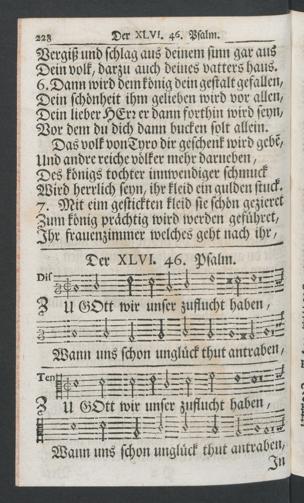 228 Der XLVI. 46. Psalm.
Vergiß und schlag aus deinem sinn gar aus
Dein volk, darzu auch deines vatters haus.
6. Dann wird dem könig dein gestalt gefallen,
Dein schönheit ihm gelieben wird vor allen,
Dein lieber HErr er dann forthin wird seyn,
Vor dem du dich dann bucken solt allein.
Das volk von Tyro dir geschenk wird gebē,
Und andre reiche völker mehr darneben,
Des königs tochter innwendiger schmuck
Wird herrlich seyn, ihr kleid ein gulden stuck.
7. Mit eim gestickten kleid sie schön gezieret
Zum könig prächtig wird werden geführet,
Ihr frauenzimmer welches geht nach ihr,
Der XLVI. 46. Psalm.
Dis
ZU GOtt wir unser zuflucht haben,
Wann uns schon unglück thut antraben,
Ten
ZU GOtt wir unser zuflucht haben,
Wann uns schon unglück thut antraben,
In